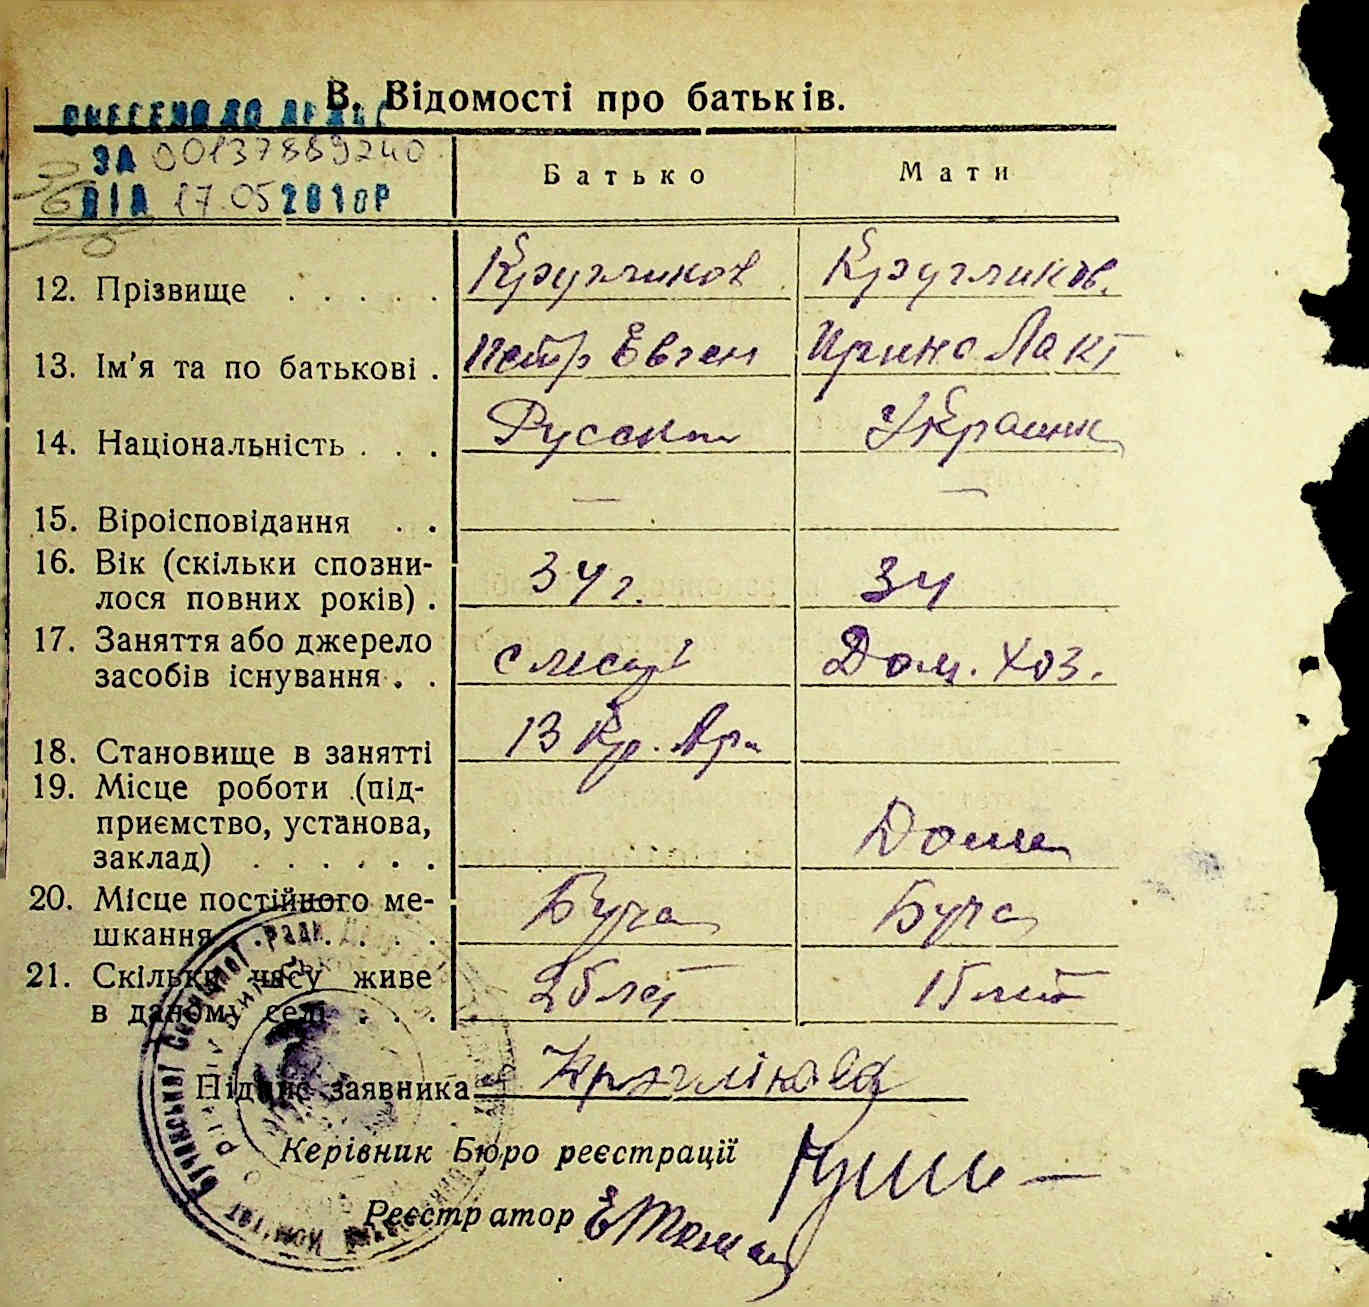 В. Відомості про батьків.
ВНЕСЕНО ДО ДРАЦС
ЗА 00137889240
ВІД 17.05 2010Р
Батько Мати
12. Прізвище . . . . . Кругликов Кругликов.
13. Ім'я та по батькові . Петр Евген Ирина Лакт
14. Національність . . . Русский Украинк
15. Віроісповідання . . — —
16. Вік (скільки спозни-
лося повних років) . 34 г. 34
17. Заняття або джерело
засобів існування . . слесарь Дом. хоз.
18. Становище в занятті 13 Кр.
19. Місце роботи (під-
приємство, установа,
заклад) . . . . . . Дома
20. Місце постійного ме-
шкання . . . . . Буча Буча
21. Скільки часу живе
в даному селі . . . 25 лет 15 лет
Підпис заявника Круглікова
Керівник Бюро реєстрації
Реєстратор